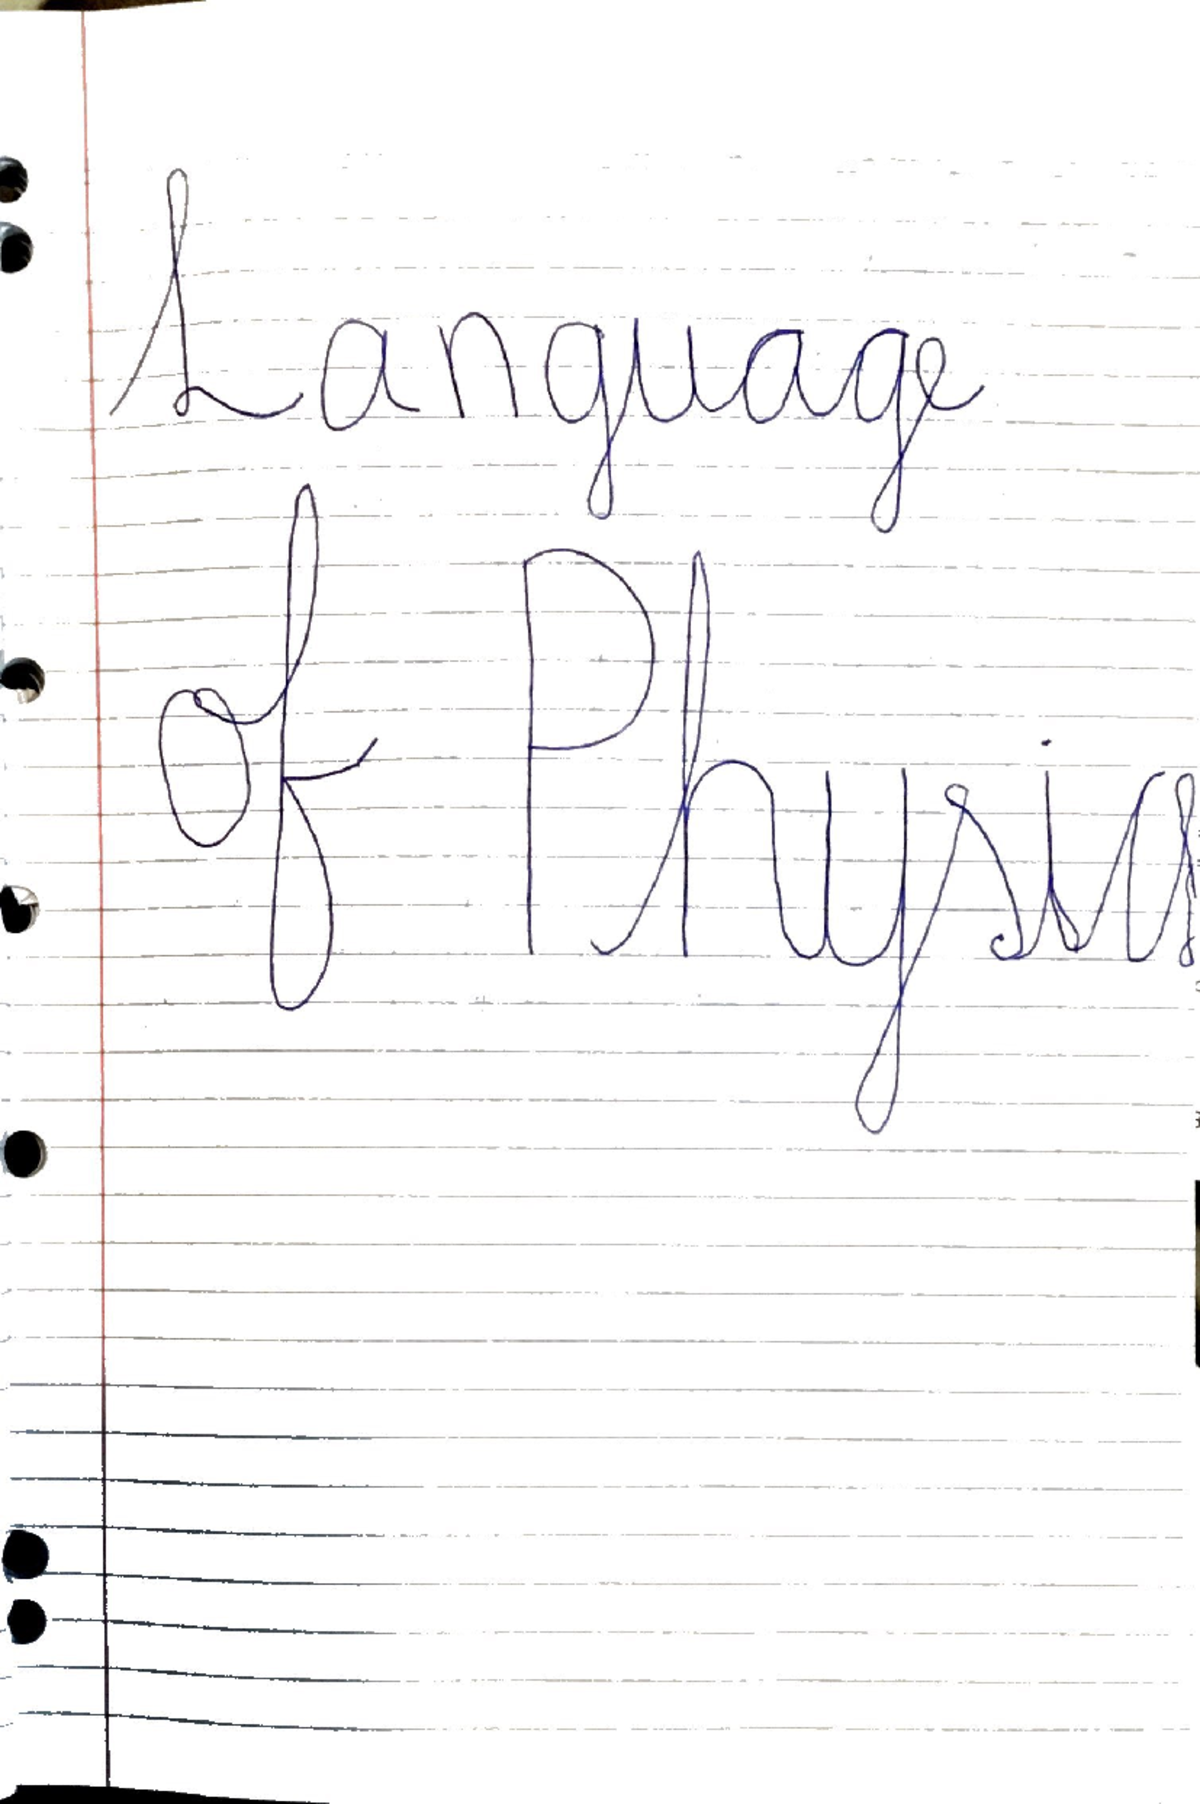 Language
of Physics